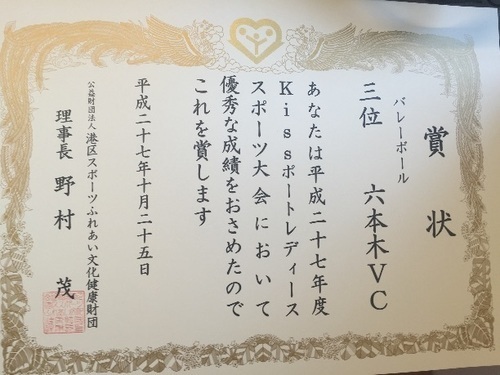 賞状
バレーボール
三位 六本木VC
あなたは平成二十七年度
Kissポートレディース
スポーツ大会において
優秀な成績をおさめたので
これを賞します
平成二十七年十月二十五日
公益財団法人 港区スポーツふれあい文化健康財団
理事長 野村 茂